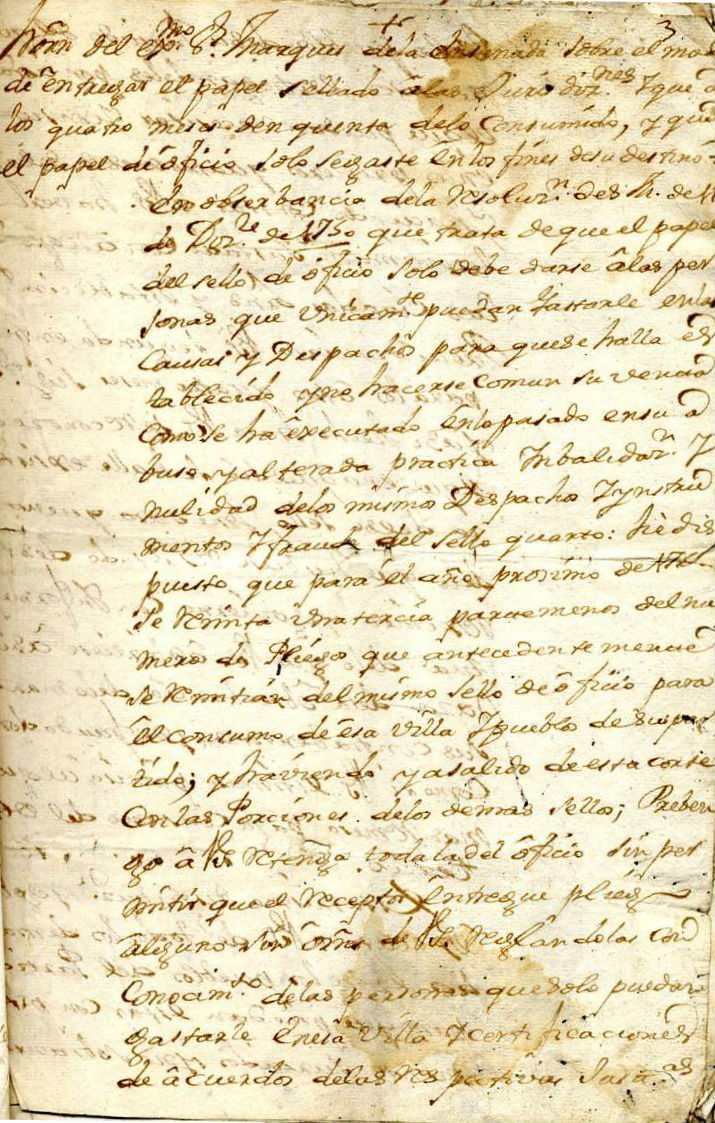 3
Horn del exmo Sr. Marques de la Ensenada sobre el mo
de entregar el papel sellado a las Jurisdiz.nes Y que a
los quatro meses den quenta delo consumido, y que
el papel de oficio solo se gaste en los fines de su destino
En observancia dela resoluz.n de S. M. de
de Dz.re de 1750 que trata de que el papel
del sello de oficio solo debe darse a las per
sonas que unicam.te puedan gastarle en las
Causas y Despachos para que se halla es
tablecido y no hacerse comun su venta
Como se ha executado en lo pasado en su a
buso y alterada practica Inbalidaz.n Y
nulidad delos mismos Despachos Y ynstru
mentos Y fraude del sello quarto: he dis
puesto que para el año proximo de
se remita una tercia parte menos del nu
mero de Pliegos que antecedentemente
se remitian del mismo sello de oficio para
el consumo de esa villa Y pueblo de su par
tido; y haviendo ya salido de esta corte
Con las Porciones delos demas sellos; Preben
go a V. retenga toda la del oficio sin per
mitir que el receptor entregue pliego
alguno sin orn de V. reglandolas con
Conocim.to de las personas que solo puedan
gastarle en esa villa Y certificaciones
de acuerdos delas respectivas